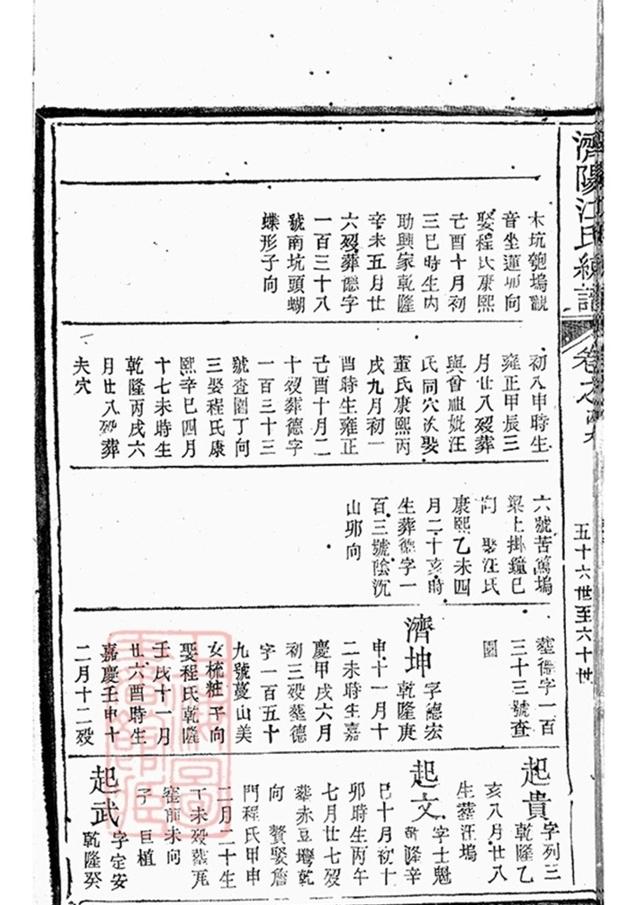 濟陽江氏統譜
卷之
五十六世至六十世
木坑匏塢觀
音坐蓮卯向
娶程氏康熙
己酉十月初
三巳時生內
助興家乾隆
辛未五月廿
六歿葬德字
一百三十八
號南坑頭蝴
蝶形子向
初八申時生
雍正甲辰三
月廿八歿葬
與曾祖妣汪
氏同穴次娶
董氏康熙丙
戌九月初一
酉時生雍正
己酉十月二
十歿葬德字
一百三十三
號查園丁向
三娶程氏康
熙辛巳四月
十七未時生
乾隆丙戌六
月廿八歿葬
夫穴
六號苦蔦塢
梁上掛鐘巳
向 娶汪氏
康熙乙未四
月二十亥時
生葬德字一
百三號陰沉
山卯向
葬德字一百
三十三號查
園
濟坤 字德宏
乾隆庚
申十一月十
二未時生嘉
慶甲戌六月
初三歿葬德
字一百五十
九號蔓山美
女梳粧 向
娶程氏乾隆
壬戌十一月
廿六酉時生
嘉慶壬申十
二月十二歿
起貴 字列三
乾隆乙
亥八月廿八
生葬汪塢
起文 字士魁
乾隆辛
巳十月初十
卯時生丙午
七月廿七歿
葬赤豆塆乾
向 贅娶詹
門程氏甲申
二月二十生
丁未歿葬瓦
窑前未向
子 巨植
起武 字定安
乾隆癸